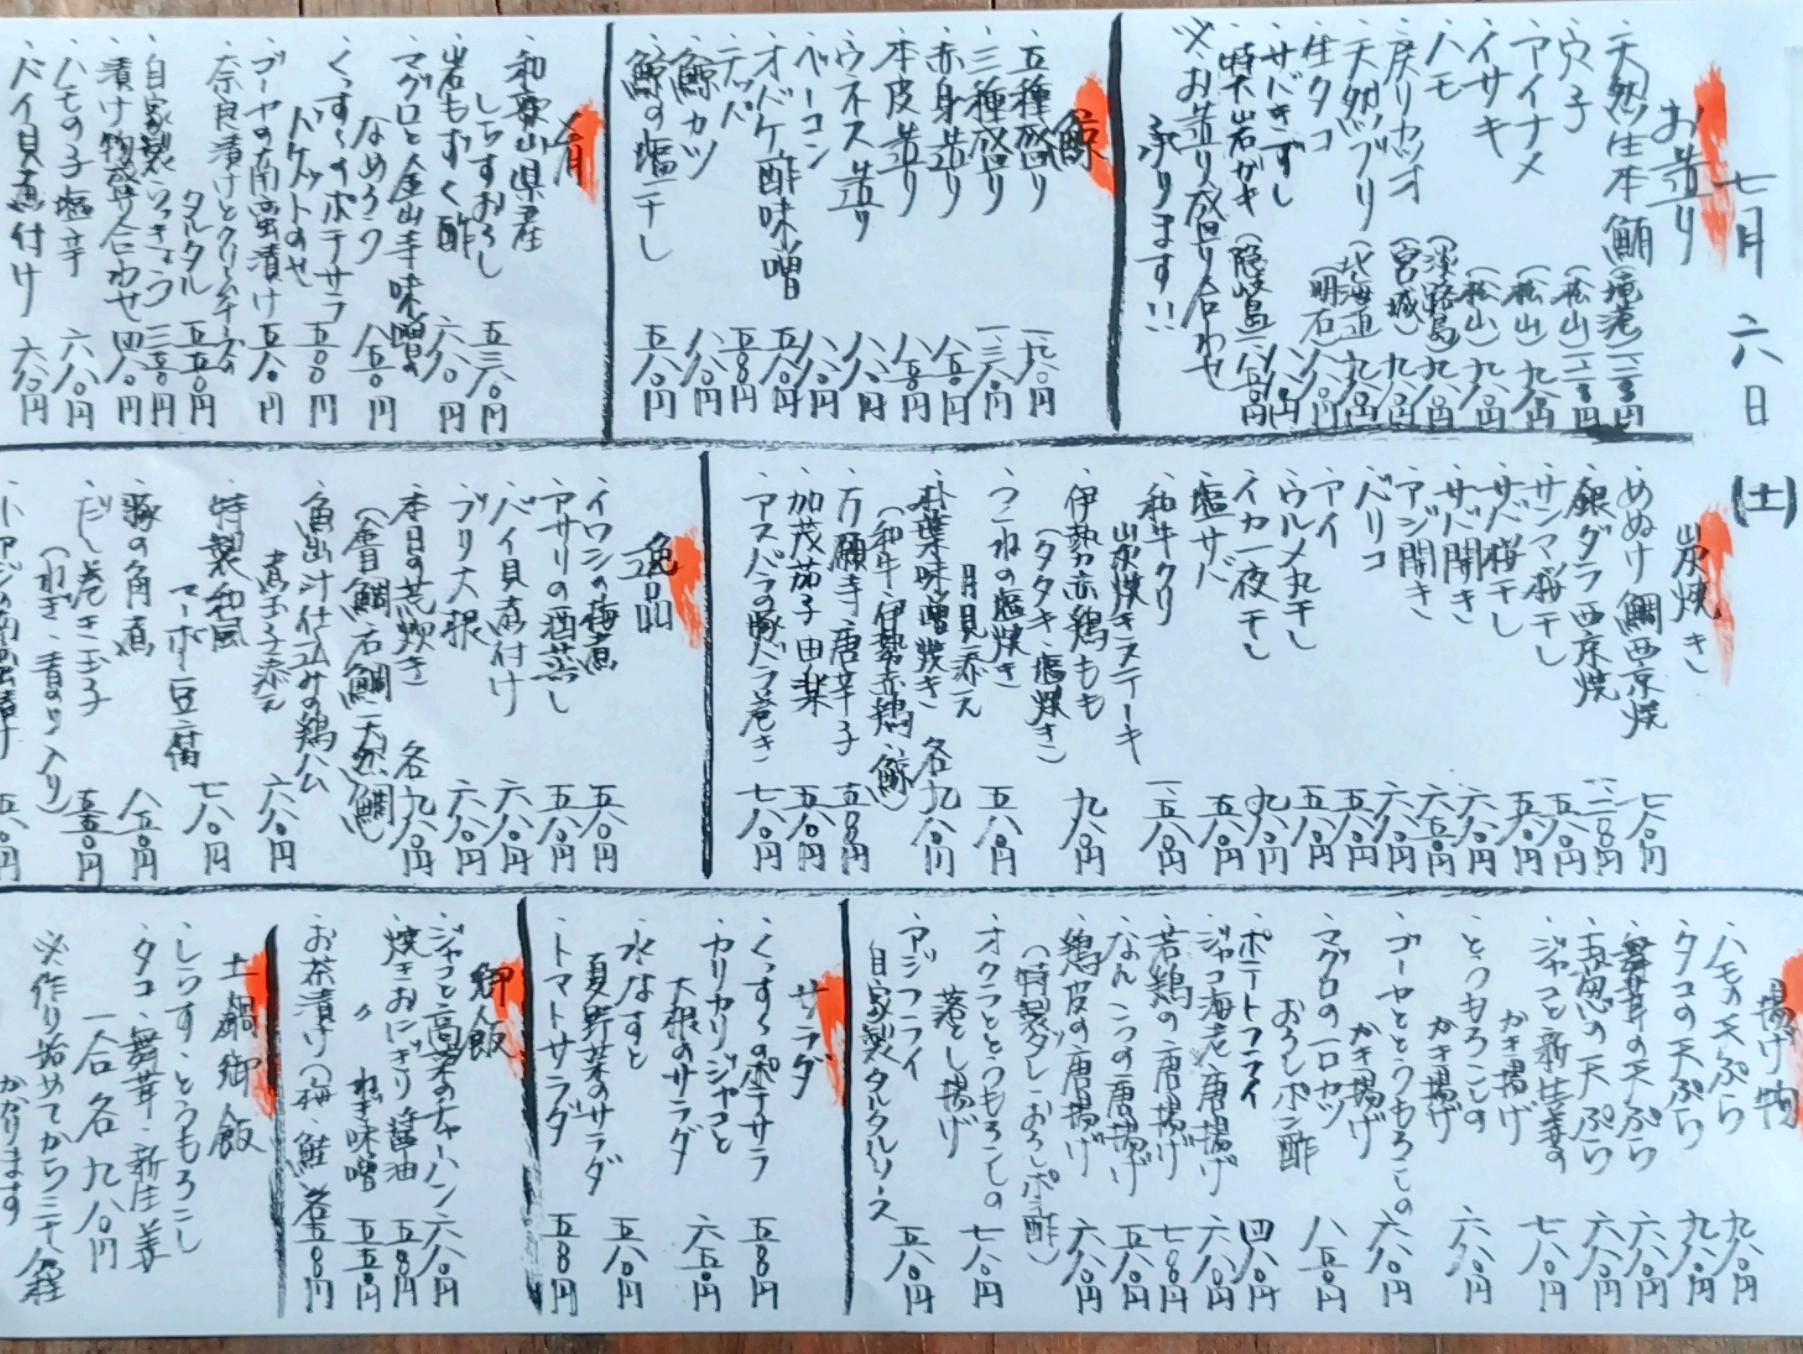 七月六日(土)
お造り
・天然生本鮪
・穴子(松山)
・アイナメ(松山)九八〇円
・イサキ(松山)九八〇円
・ハモ(淡路島)九八〇円
・戻りカツオ(宮城)九八〇円
・天然ブリ(北海道)九八〇円
・生タコ(明石)八八〇円
・サバきずし
・特大岩ガキ(隠岐島)
※お造り盛り合わせ
承ります!!
鯨
・五種盛り
・三種盛り
・赤身造り 八五〇円
・本皮造り 八五〇円
・ウネス造り
・ベーコン
・オバケ酢味噌 五八〇円
・テッパ 五八〇円
・鯨カツ 八八〇円
・鯨の塩干し 五八〇円
一省
・和歌山県産
しらすおろし
・岩もずく酢 六八〇円
・マグロと金山寺味噌の
なめろう 八五〇円
・くっすーのポテサラ
バケットのせ 五八〇円
・ゴーヤの南蛮漬け 五八〇円
・奈良漬けとクリームチーズの
タルタル 五五〇円
・自家製らっきょう 三五〇円
・漬け物盛り合わせ 四八〇円
・ハモの子塩辛 六八〇円
・バイ貝煮付け 六八〇円
炭焼き
・めぬけ鯛西京焼 七八〇円
・銀ダラ西京焼
・サンマ梅干し 五八〇円
・サバ梅干し 五八〇円
・サバ開き 六八〇円
・アジ開き 六五〇円
・バリコ 六八〇円
・アイ 五八〇円
・ウルメ丸干し 五八〇円
・イカ一夜干し 九八〇円
・塩サバ 五八〇円
・和牛クリ
炭焼きステーキ 一、五八〇円
・伊勢赤鶏もも
(タタキ・塩焼き) 九八〇円
・つくねの塩焼き
月見添え 五八〇円
・朴葉味噌焼き 各九八〇円
(和牛・伊勢赤鶏・鯨)
・万願寺唐辛子 五八〇円
・加茂茄子田楽 五八〇円
・アスパラの豚バラ巻き 七八〇円
逸品
・イワシの梅煮 五八〇円
・アサリの酒蒸し 五八〇円
・バイ貝煮付け 六八〇円
・ブリ大根 六八〇円
・本日の荒炊き 各九八〇円
(金目鯛・石鯛・天然鯛)
・魚出汁仕込みの鶏ハム
煮玉子添え 六八〇円
・特製和風
マーボー豆腐 七八〇円
・豚の角煮 八五〇円
・だし巻き玉子
(ねぎ・青のり入り)
・小アジの南蛮漬け 五八〇円
揚げ物
・ハモの天ぷら 九八〇円
・タコの天ぷら 九八〇円
・舞茸の天ぷら 六八〇円
の天ぷら 六八〇円
・ジャコと新生姜の
かき揚げ 七八〇円
・とうもろこしの
かき揚げ 六八〇円
・ゴーヤととうもろこしの
かき揚げ 六八〇円
・マグロの一口カツ
おろしポン酢 八五〇円
・ポテトフライ 四八〇円
・ジャコ海老唐揚げ 六八〇円
・若鶏の唐揚げ 七八〇円
・なんこつの唐揚げ 五八〇円
・鶏皮の唐揚げ 六八〇円
(特製ダレ・おろしポン酢)
・オクラととうもろこしの
落とし揚げ 七八〇円
・アジフライ 五八〇円
自家製タルタルソース
サラダ
・くっすーのポテサラ 五八〇円
・カリカリジャコと
大根のサラダ 六五〇円
・水なすと
夏野菜のサラダ 五八〇円
・トマトサラダ 五八〇円
御飯
・ジャコと高菜のチャーハン 六八〇円
・焼きおにぎり醤油 五八〇円
〃 ねぎ味噌 五五〇円
・お茶漬け(梅・鮭)各五八〇円
土鍋御飯
・しらす・とうもろこし
・タコ・舞茸・新生姜
一合各九八〇円
※作り始めてから三十分程
かかります